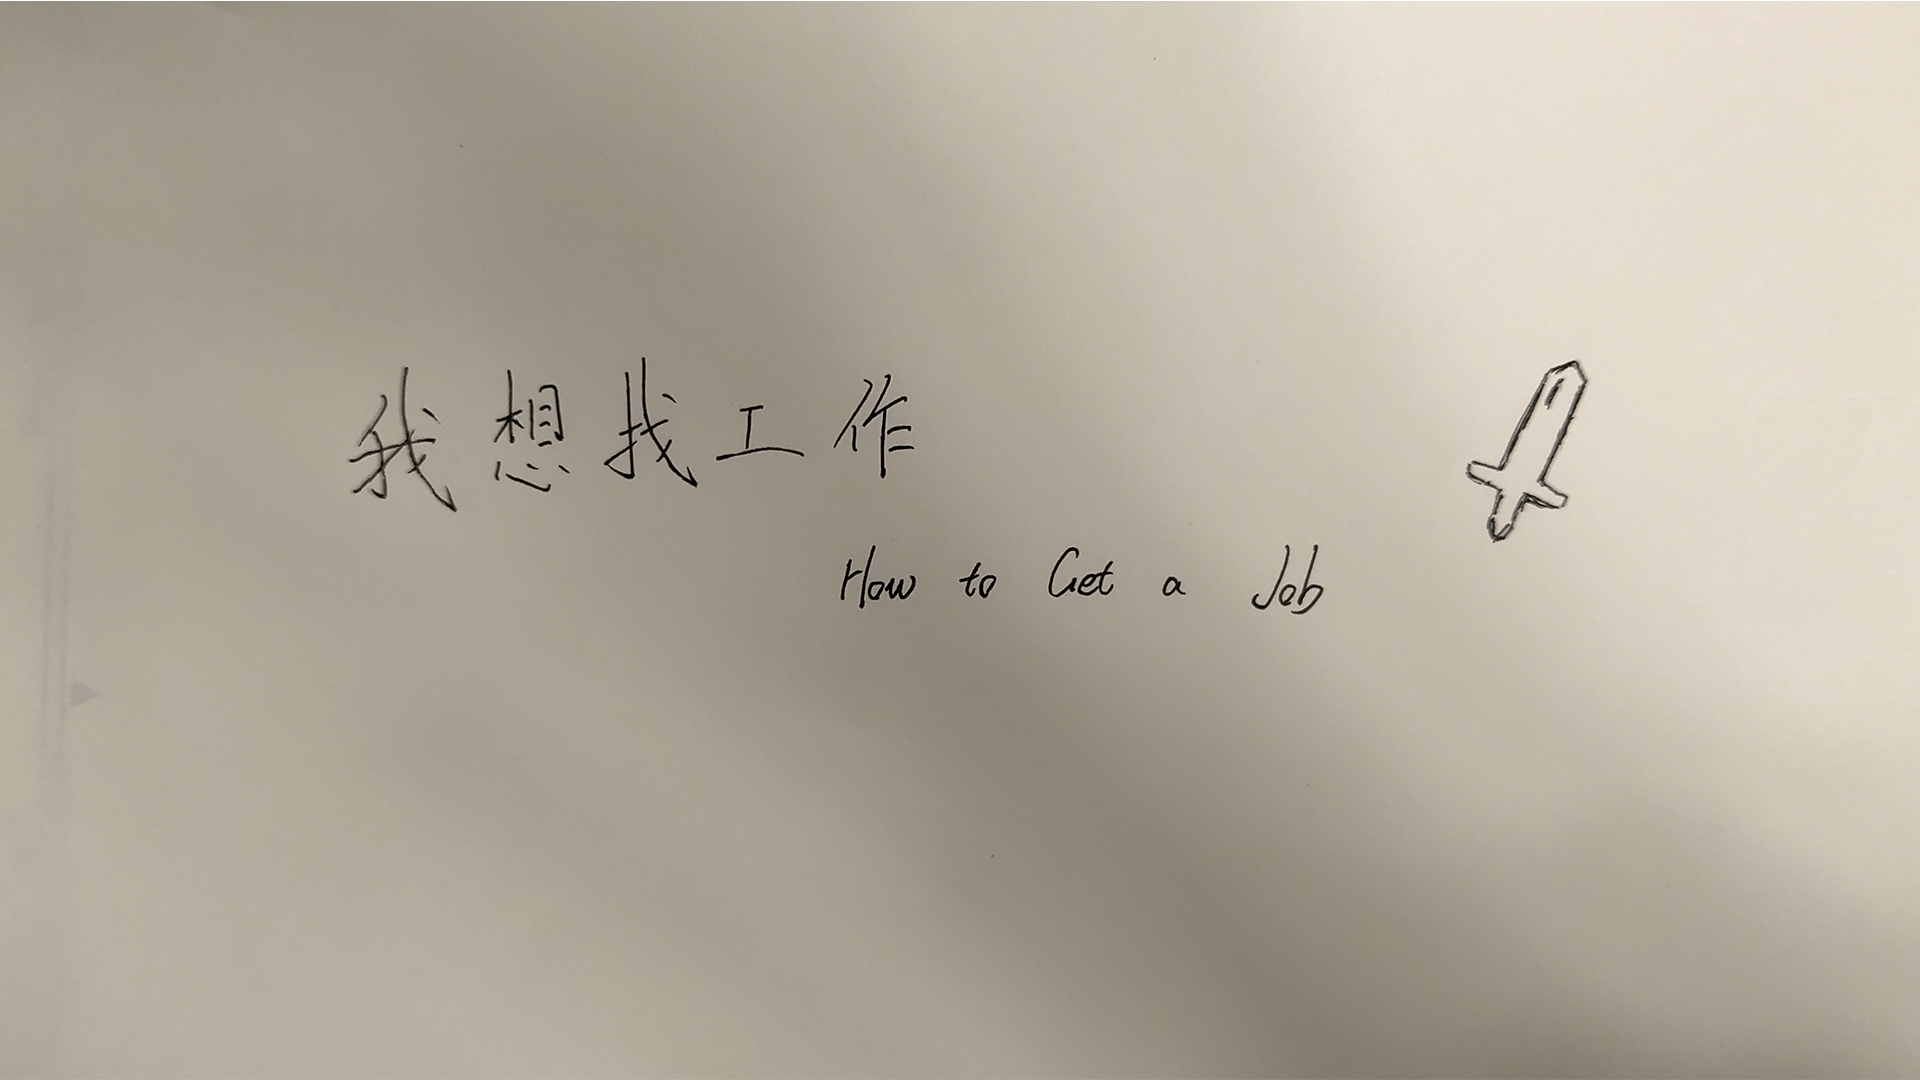 我想找工作
How to Get a Job